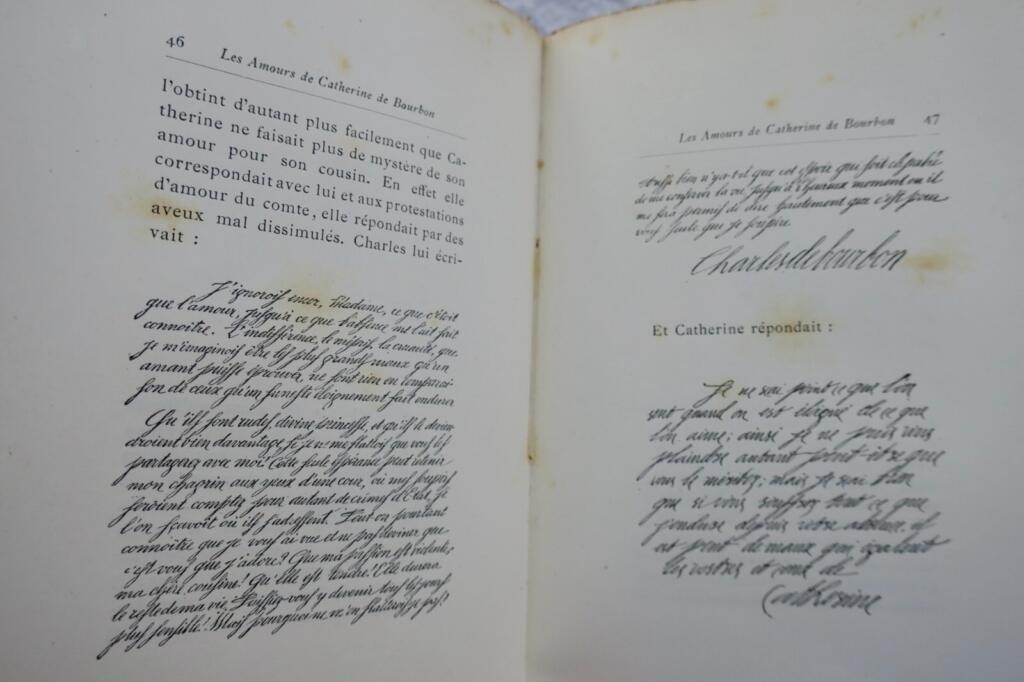 46
Les Amours de Catherine de Bourbon
l'obtint d'autant plus facilement que Ca-
therine ne faisait plus de mystère de son
amour pour son cousin. En effet elle
correspondait avec lui et aux protestations
d'amour du comte, elle répondait par des
aveux mal dissimulés. Charles lui écri-
vait :
J'ignorois encor, Madame, ce que c'étoit
que l'amour, jusqu'à ce que l'absence me l'ait fait
connoître. L'indifférence, le mépris, la cruauté, que
je m'imaginois être les plus grands maux qu'un
amant puisse éprouver, ne sont rien en comparai
son de ceux qu'un funeste éloignement fait endurer
Qu'ils sont rudes divine princesse, et qu'ils le devien
droient bien davantage si je ne me flattois que vous les
partagerez avec moi! Cette seule espérance peut retenir
mon chagrin aux yeux d'une cour, où mes soupirs
seroient comptez pour autant de crimes d'Etat, si
l'on sçavoit où ils s'adressent. Peut on pourtant
connoître que je vous ai vue et ne pas deviner que
c'est vous que j'adore? Que ma passion est violente,
ma chère cousine! Qu'elle est tendre! Elle durera
le reste de ma vie. Puissiez-vous y devenir tous les jours
plus sensible! Mais pourquoi ne m'en flatterois-je pas?
Les Amours de Catherine de Bourbon
47
aussi bien n'y a-t-il que cet espoir qui soit capable
de me conserver la vie, jusqu'à l'heureux moment ou il
me sera permis de dire hautement que c'est pour
vous seule que je soupire
Charles de bourbon
Et Catherine répondait :
Je ne sai point ce que l'on
sent quand on est éloigné de ce que
l'on aime; ainsi je ne puis vous
plaindre autant peut être que
vous le méritez; mais je sai bien
que si vous souffrez tout ce que
j'endure depuis votre absence, il
est peut de maux qui égalent
les vostres et ceux de
Catherine